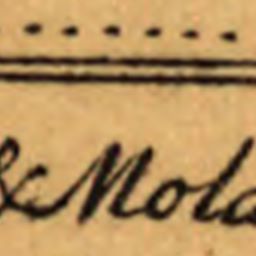 & Mola